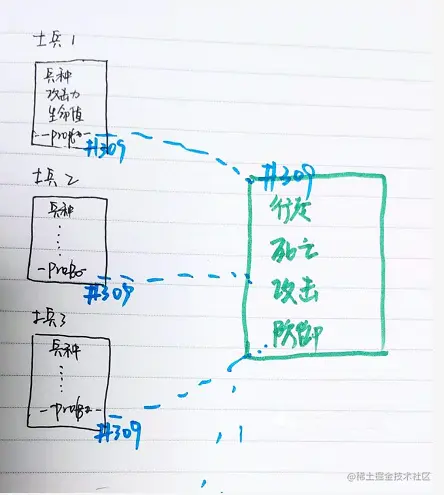 士兵1
兵种
攻击力
生命值
__proto__
#309
士兵2
兵种
......
__proto__
#309
士兵3
兵种
......
__proto__
#309
#309
行走
死亡
攻击
防御
@稀土掘金技术社区